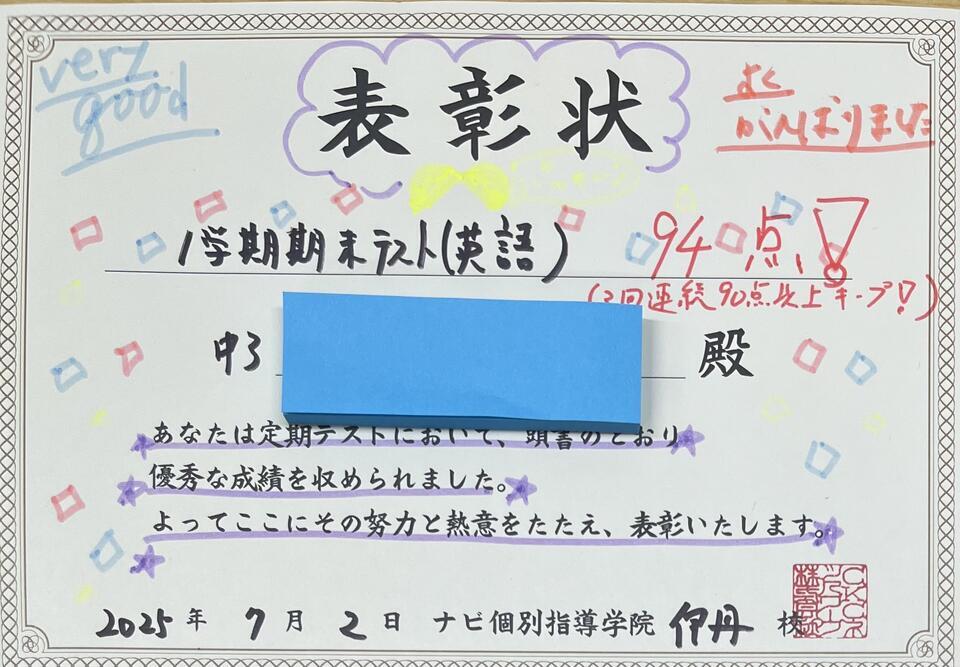 very good
表彰状
よく
がんばりました
1学期期末テスト(英語) 94点!
(2回連続90点以上キープ!)
中3 殿
あなたは定期テストにおいて、頭書のとおり
優秀な成績を収められました。
よってここにその努力と熱意をたたえ、表彰いたします。
2025年7月2日 ナビ個別指導学院 伊丹 校